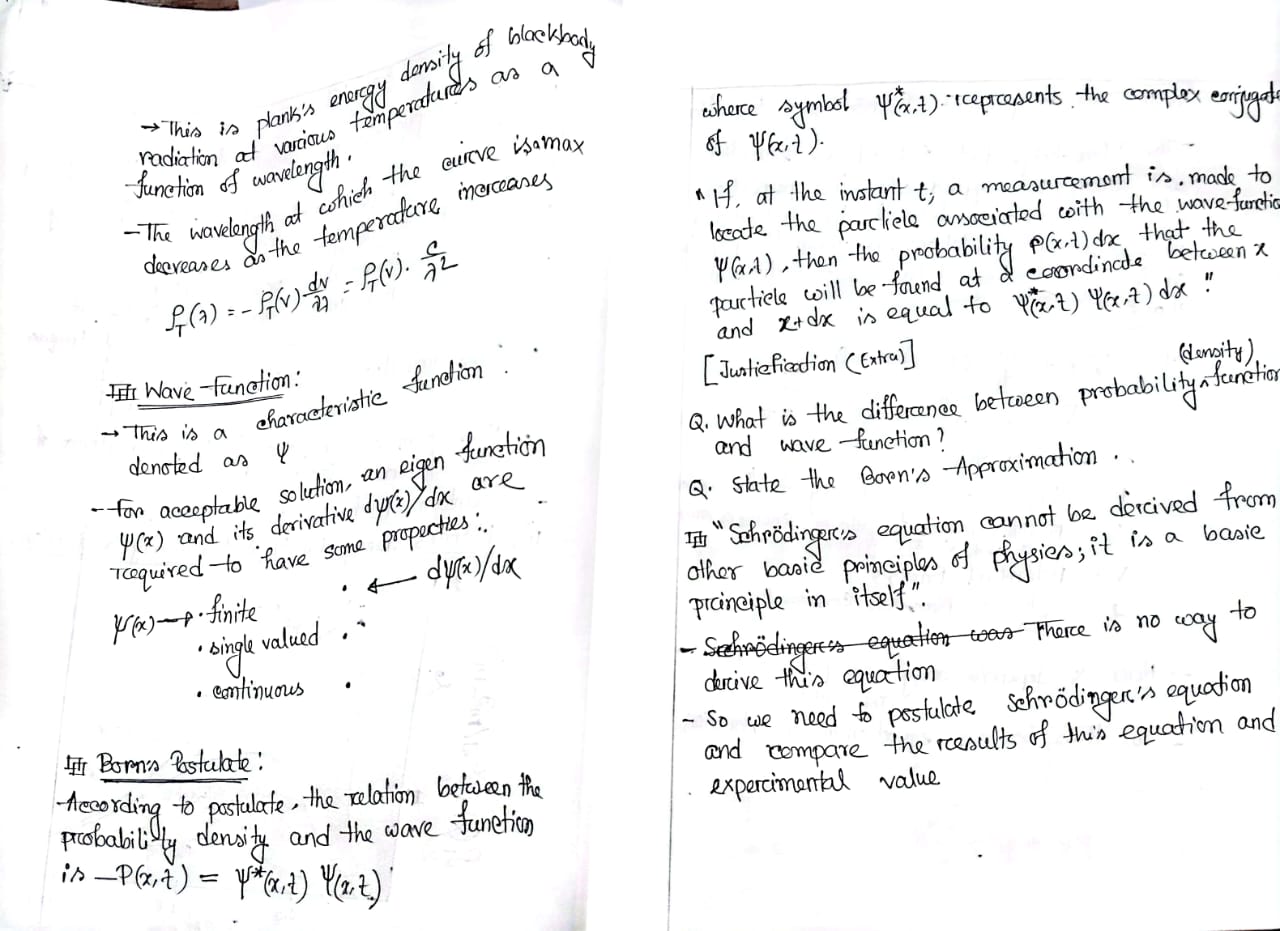 → This is plank's energy density of blackbody
radiation at various temperatures as a
function of wavelength.
- The wavelength at which the curve is a max
decreases as the temperature increases
ρ_T(λ) = - ρ_T(ν) dν/dλ = ρ_T(ν) · c/λ²
Wave Function:
→ This is a characteristic function
denoted as ψ
- For acceptable solution, an eigen function
ψ(x) and its derivative dψ(x)/dx are
required to have some properties:
ψ(x) → · finite · ← dψ(x)/dx
· single valued ·
· continuous ·
Born's Postulate:
According to postulate, the relation between the
probability density and the wave function
is - P(x,t) = ψ*(x,t) ψ(x,t)
where symbol ψ*(x,t) represents the complex conjugate
of ψ(x,t).
"If, at the instant t, a measurement is made to
locate the particle associated with the wave-functio
Ψ(x,t), then the probability P(x,t) dx that the
particle will be found at a coordinate between x
and x+dx is equal to ψ*(x,t) ψ(x,t) dx"
[Justification (Extra)]
Q. What is the difference between probability (density) function
and wave function?
Q. State the Born's Approximation.
"Schrödinger's equation cannot be derived from
other basic principles of physics; it is a basic
principle in itself".
- ~~Schrödinger's equation was~~ There is no way to
derive this equation
- So we need to postulate Schrödinger's equation
and compare the results of this equation and
experimental value